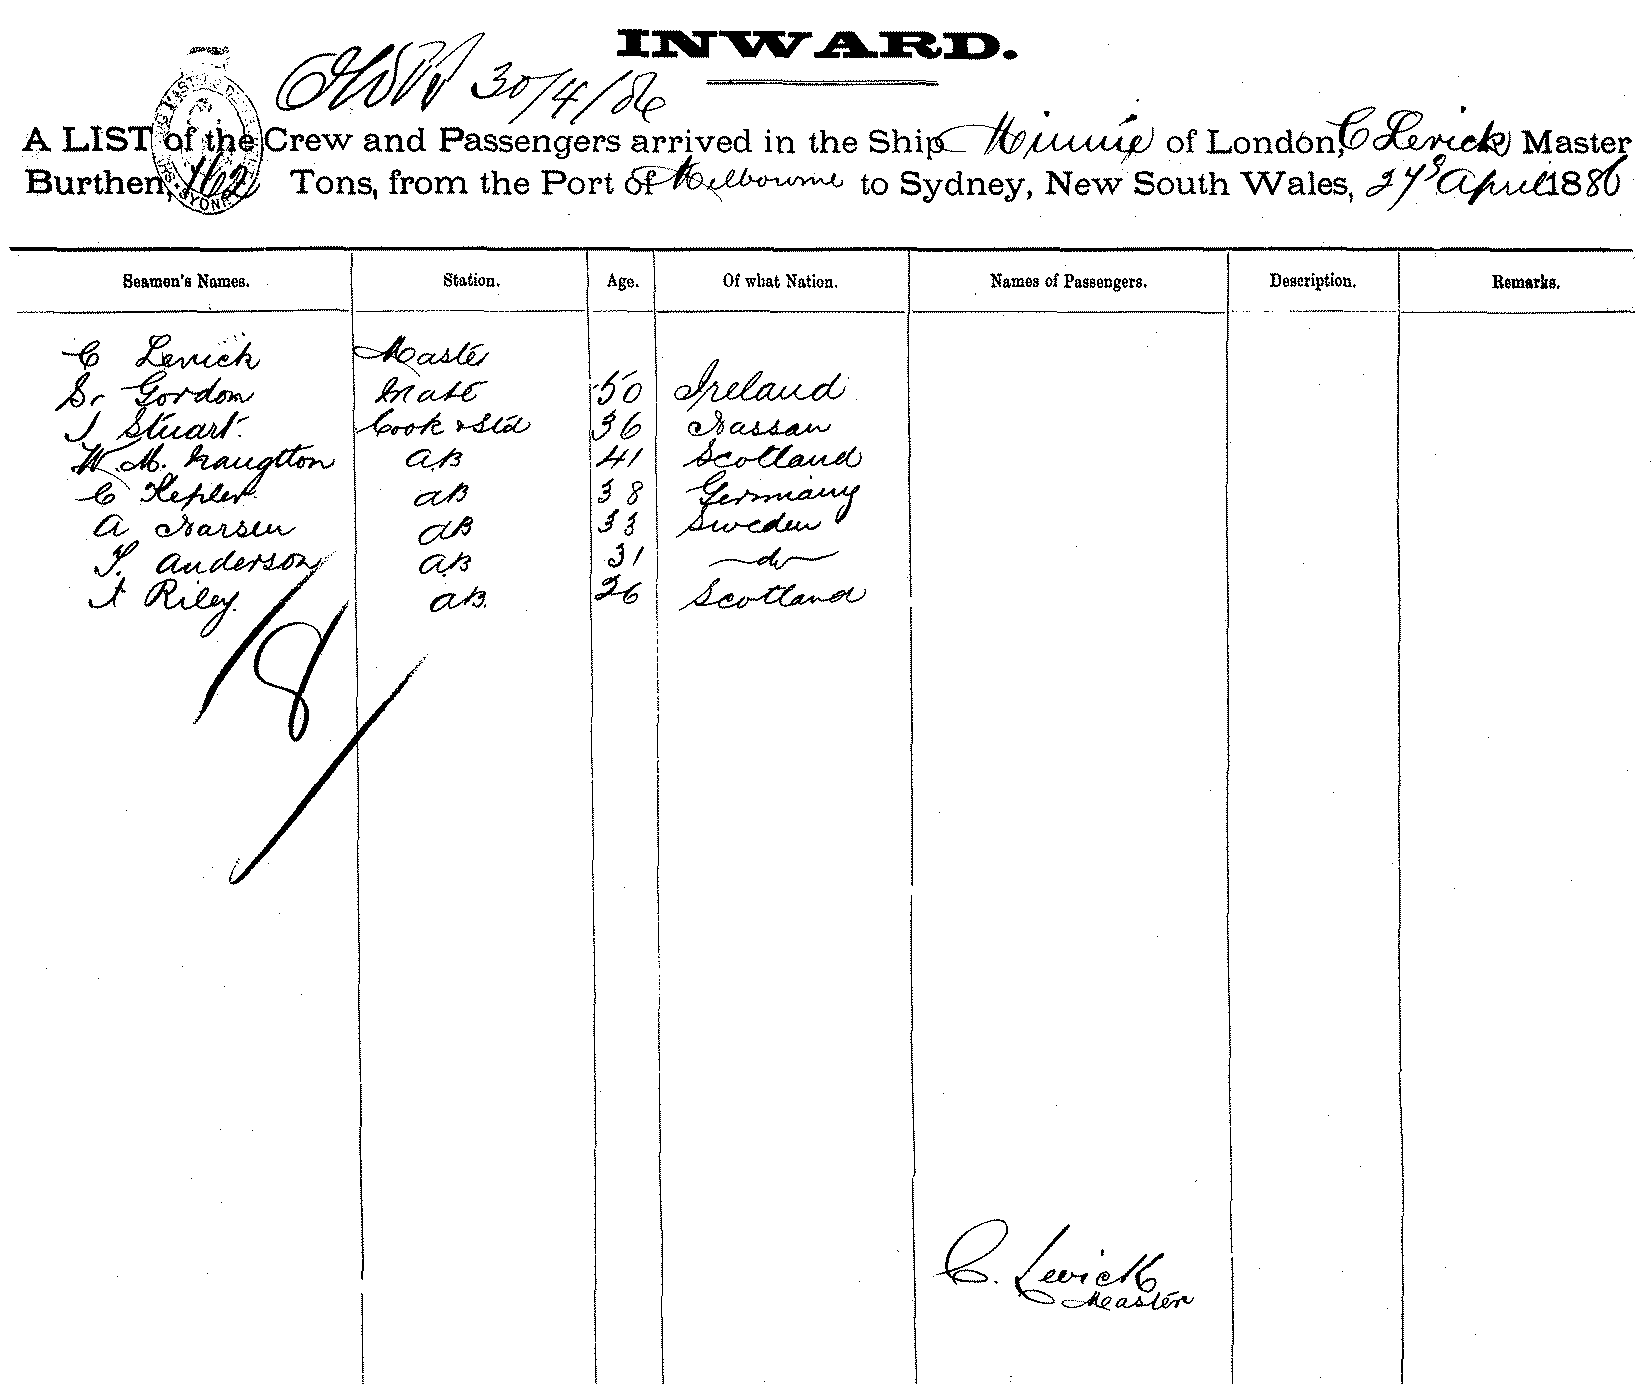 INWARD.
30/4/86
A LIST of the Crew and Passengers arrived in the Ship Minnie of London, C Levick Master
Burthen, 162 Tons, from the Port of Melbourne to Sydney, New South Wales, 27 April 1886
Seamen's Names. Station. Age. Of what Nation. Names of Passengers. Description. Remarks.
C Levick Master
S. Gordon Mate 50 Ireland
J Stuart. Cook & Std 36 Nassau
W. M. Naugtton AB 41 Scotland
C Kepler AB 38 Germany
A Narsen AB 33 Sweden
Anderson AB 31 do
Riley. AB. 26 Scotland
8
C. Levick
Master